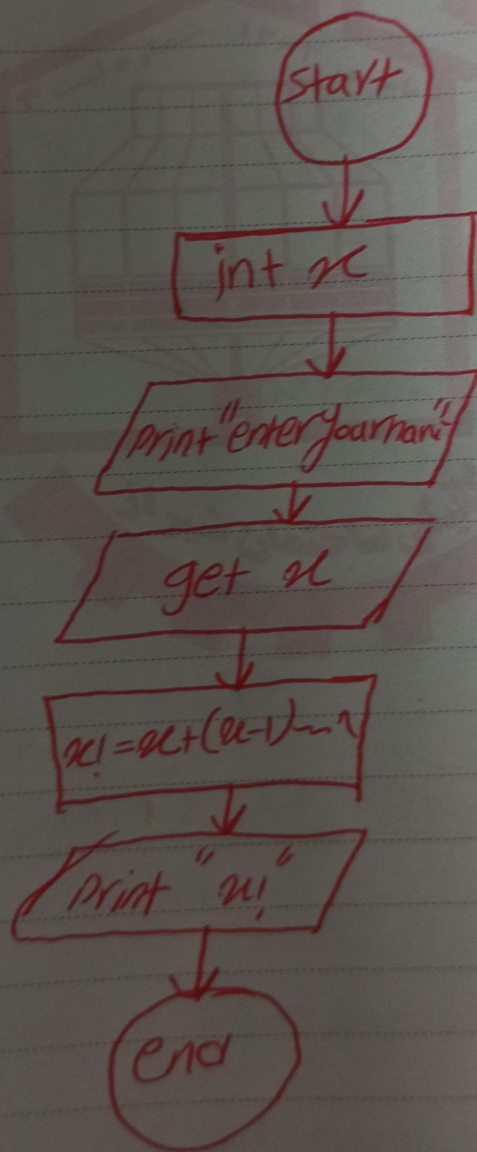 start
int x
print "enter your nam"
get x
x! = x+(x-1)
print "x!"
end